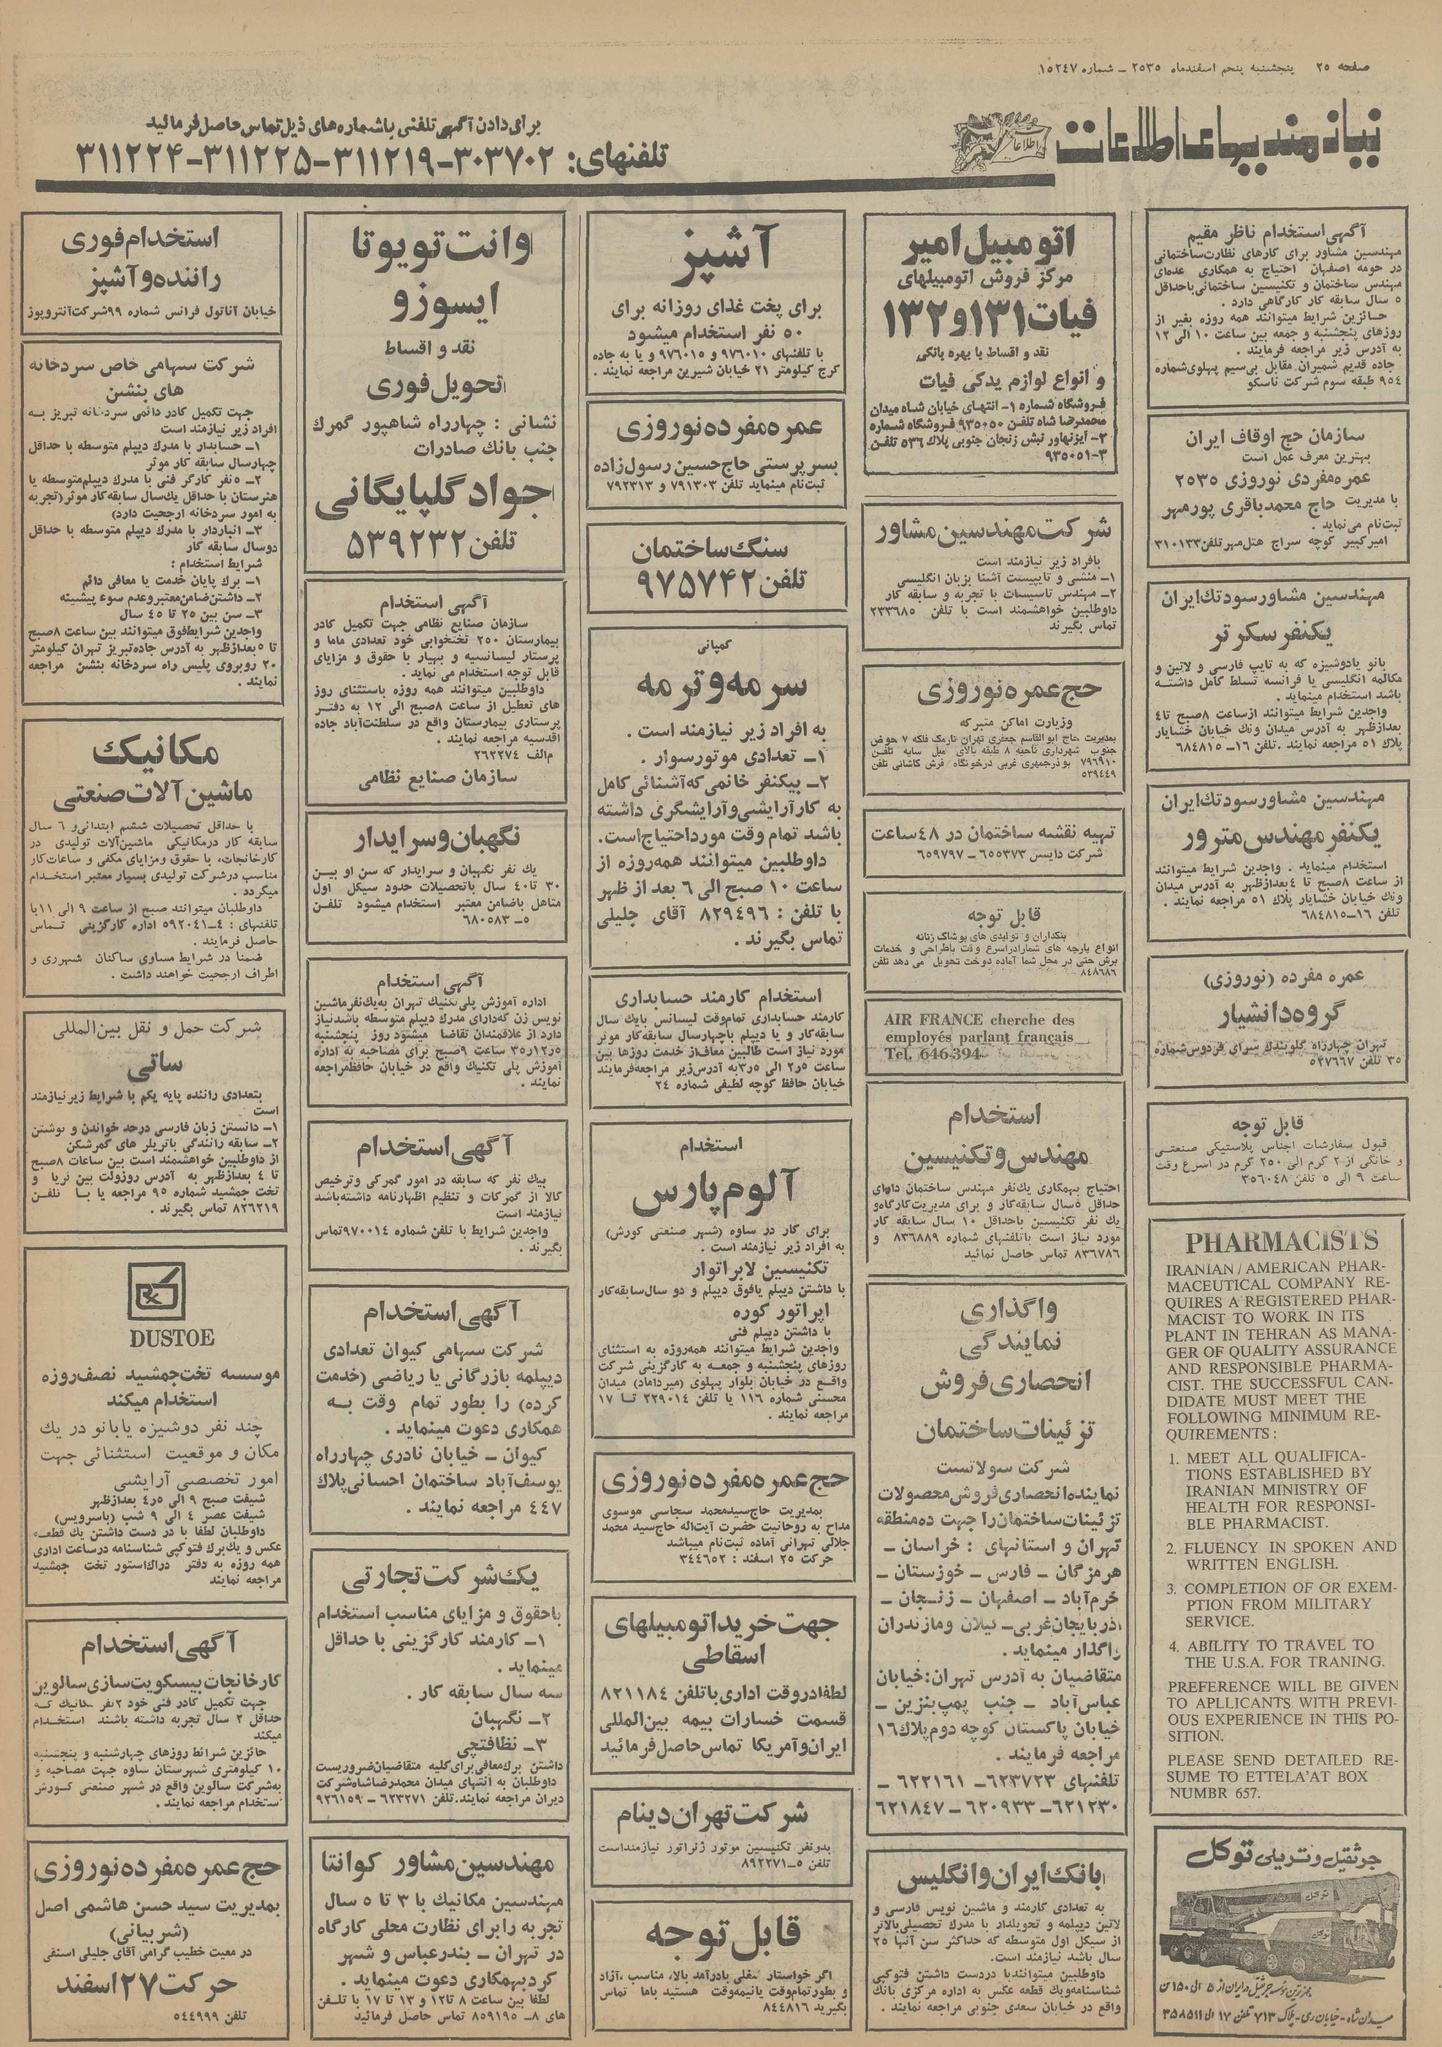 صفحه ۲۵ پنجشنبه پنجم اسفندماه ۲۵۳۵ – شماره ۱۵۲۴۷
نیازمندیهای اطلاعات
برای دادن آگهی تلفنی باشماره‌های ذیل تماس حاصل فرمائید
تلفنهای: ۳۰۳۷۰۲-۳۱۱۲۱۹-۳۱۱۲۲۵-۳۱۱۲۲۴
آگهی استخدام ناظر مقیم
مهندسین مشاور برای کارهای نظارت ساختمانی
در حومه اصفهان احتیاج به همکاری عده‌ای
مهندس ساختمان و تکنیسین ساختمانی باحداقل
۵ سال سابقه کار کارگاهی دارد .
حائزین شرایط میتوانند همه روزه بغیر از
روزهای پنجشنبه و جمعه بین ساعت ۱۰ الی ۱۲
به آدرس زیر مراجعه فرمایند .
جاده قدیم شمیران مقابل بی‌سیم پهلوی شماره
۹۵۴ طبقه سوم شرکت ناسکو
سازمان حج اوقاف ایران
بهترین معرف عمل است
عمره مفردی نوروزی ۲۵۳۵
با مدیریت حاج محمدباقری پورمهر
ثبت‌نام می‌نماید .
امیرکبیر کوچه سراج هتل مهر تلفن ۳۱۰۱۳۳
مهندسین مشاور سودتك ایران
یکنفر سکرتر
بانو یادوشیزه که به تایپ فارسی و لاتین و
مکالمه انگلیسی یا فرانسه تسلط کامل داشته
باشد استخدام مینماید .
واجدین شرایط میتوانند ازساعت ۸صبح تا۴
بعدازظهر به آدرس میدان ونك خیابان خشایار
پلاك ۵۱ مراجعه نمایند . تلفن ۱۶–۶۸۴۸۱۵
مهندسین مشاور سودتك ایران
یکنفر مهندس مترور
استخدام مینماید . واجدین شرایط میتوانند
از ساعت ۸صبح تا ۴بعدازظهر به آدرس میدان
ونك خیابان خشایار پلاك ۵۱ مراجعه نمایند .
تلفن ۱۶–۶۸۴۸۱۵
عمره مفرده (نوروزی)
گروه دانشیار
تهران چهارراه گلوبندك سرای فردوس شماره
۳۵ تلفن ۵۲۷۶۶۷
قابل توجه
قبول سفارشات اجناس پلاستیکی صنعتی
و خانگی از ۲ گرم الی ۲۵۰ گرم در اسرع وقت
ساعت ۹ الی ۵ تلفن ۳۵۶۰۴۸
PHARMACISTS
IRANIAN / AMERICAN PHAR-
MACEUTICAL COMPANY RE-
QUIRES A REGISTERED PHAR-
MACIST TO WORK IN ITS
PLANT IN TEHRAN AS MANA-
GER OF QUALITY ASSURANCE
AND RESPONSIBLE PHARMA-
CIST. THE SUCCESSFUL CAN-
DIDATE MUST MEET THE
FOLLOWING MINIMUM RE-
QUIREMENTS :
1. MEET ALL QUALIFICA-
TIONS ESTABLISHED BY
IRANIAN MINISTRY OF
HEALTH FOR RESPONSI-
BLE PHARMACIST.
2. FLUENCY IN SPOKEN AND
WRITTEN ENGLISH.
3. COMPLETION OF OR EXEM-
PTION FROM MILITARY
SERVICE.
4. ABILITY TO TRAVEL TO
THE U.S.A. FOR TRANING.
PREFERENCE WILL BE GIVEN
TO APLLICANTS WITH PREVI-
OUS EXPERIENCE IN THIS PO-
SITION.
PLEASE SEND DETAILED RE-
SUME TO ETTELA'AT BOX
NUMBR 657.
جرثقیل و تریلی توکل
توکل
میدان شاه - خیابان ری - پلاک ۷۱۳ تلفن ۱۷ الی ۳۵۸۵۱۱
اتومبیل امیر
مرکز فروش اتومبیلهای
فیات ۱۳۱ و ۱۳۲
نقد و اقساط با بهره بانکی
و انواع لوازم یدکی فیات
فروشگاه شماره ۱- انتهای خیابان شاه میدان
محمدرضا شاه تلفن ۹۳۵۰۵۰ فروشگاه شماره
۲- آیزنهاور نبش زنجان جنوبی پلاك ۵۳۶ تلفن
۹۳۵۰۵۱-۳
شرکت مهندسین مشاور
بافراد زیر نیازمند است
۱– منشی و تایپیست آشنا بزبان انگلیسی
۲– مهندس تاسیسات با تجربه و سابقه کار
داوطلبین خواهشمند است با تلفن ۲۳۳۶۸۵
تماس بگیرند
حج عمره نوروزی
وزیارت اماکن متبرکه
بمدیریت حاج ابوالقاسم جعفری تهران نارمك فلکه ۷ حوض
جنوب شهرداری ناحیه ۸ طبقه بالای مبل سایه تلفن
۷۹۶۹۱۰ بوذرجمهری غربی درخونگاه فرش کاشانی تلفن
۵۳۹۴۴۹
تهیه نقشه ساختمان در ۴۸ساعت
شرکت دایسن ۶۵۵۳۷۳ – ۶۵۹۷۹۷
قابل توجه
بنکداران و تولیدی های پوشاك زنانه
انواع پارچه های شمارادراسرع وقت باطراحی و خدمات
برش حتی در محل شما آماده دوخت تحویل می دهد تلفن
۸۴۸۶۸۶
AIR FRANCE cherche des
employés parlant français
Tel. 646394
استخدام
مهندس و تکنیسین
احتیاج بهمکاری یك‌نفر مهندس ساختمان دارای
حداقل ۵سال سابقه‌کار و برای مدیریت کارگاه و
یك نفر تکنیسین باحداقل ۱۰ سال سابقه کار
مورد نیاز است باتلفنهای شماره ۸۳۶۸۸۹ و
۸۳۶۷۸۶ تماس حاصل نمائید
واگذاری
نمایندگی
انحصاری فروش
تزئینات ساختمان
شرکت سولاتست
نماینده انحصاری فروش محصولات
تزئینات ساختمان را جهت ده منطقه
تهران و استانهای : خراسان –
هرمزگان – فارس – خوزستان –
خرم‌آباد – اصفهان – زنجان –
آذربایجان غربی– گیلان ومازندران
واگذار مینماید .
متقاضیان به آدرس تهران: خیابان
عباس‌آباد – جنب پمپ‌بنزین –
خیابان پاکستان کوچه دوم پلاك ۱۶
مراجعه فرمایند .
تلفنهای ۶۲۳۷۲۳– ۶۲۲۱۶۱ –
۶۲۱۲۳۰– ۶۲۰۹۳۳ – ۶۲۱۸۴۷
بانك ایران و انگلیس
به تعدادی کارمند و ماشین نویس فارسی و
لاتین دیپلمه و تحویلدار با مدرك تحصیلی بالاتر
از سیکل اول متوسطه که حداکثر سن آنها ۲۵
سال باشد نیازمند است.
داوطلبین میتوانندبا دردست داشتن فتوکپی
شناسنامه‌ویك قطعه عکس به اداره مرکزی بانك
واقع در خیابان سعدی جنوبی مراجعه نمایند .
آشپز
برای پخت غذای روزانه برای
۵۰ نفر استخدام میشود
با تلفنهای ۹۷۶۰۱۰ و ۹۷۶۰۱۵ و یا به جاده
کرج کیلومتر ۲۱ خیابان شیرین مراجعه نمایند .
عمره مفرده نوروزی
بسرپرستی حاج حسین رسول‌زاده
ثبت‌نام مینماید تلفن ۷۹۱۳۰۳ و ۷۹۲۳۱۳
سنگ ساختمان
تلفن ۹۷۵۷۴۲
کمپانی
سرمه و ترمه
به افراد زیر نیازمند است .
۱– تعدادی موتورسوار .
۲– بیکنفر خانمی که آشنائی کامل
به کارآرایشی وآرایشگری داشته
باشد تمام وقت مورد احتیاج است.
داوطلبین میتوانند همه‌روزه از
ساعت ۱۰ صبح الی ۶ بعد از ظهر
با تلفن : ۸۲۹۴۹۶ آقای جلیلی
تماس بگیرند .
استخدام کارمند حسابداری
کارمند حسابداری تمام‌وقت لیسانس بایك سال
سابقه‌کار و یا دیپلم باچهارسال سابقه‌کار موثر
مورد نیاز است طالبین معاف‌از خدمت روزها بین
ساعت ۲ر۵ الی ۳ر۵به آدرس‌زیر مراجعه‌فرمایند
خیابان حافظ کوچه لطیفی شماره ۲۴
استخدام
آلوم پارس
برای کار در ساوه (شهر صنعتی کورش)
به افراد زیر نیازمند است .
تکنیسین لابراتوار
با داشتن دیپلم یافوق دیپلم و دو سال‌سابقه‌کار
اپراتور کوره
با داشتن دیپلم فنی
واجدین شرایط میتوانند همه‌روزه به استثنای
روزهای پنجشنبه و جمعه به کارگزینی شرکت
واقع در خیابان بلوار پهلوی (میرداماد) میدان
محسنی شماره ۱۱۶ یا تلفن ۲۲۹۰۱۴ تا ۱۷
مراجعه نمایند .
حج عمره مفرده نوروزی
بمدیریت حاج سیدمحمد سجاسی موسوی
مداح به روحانیت حضرت آیت‌اله حاج‌سید محمد
جلالی تهرانی آماده ثبت‌نام میباشد
حرکت ۲۵ اسفند : ۳۴۴۶۵۲
جهت خرید اتومبیلهای
اسقاطی
لطفا در وقت اداری با تلفن ۸۲۱۱۸۴
قسمت خسارات بیمه بین‌المللی
ایران و آمریکا تماس حاصل فرمائید
شرکت تهران دینام
بدونفر تکنیسین موتور ژنراتور نیازمنداست
تلفن ۵–۸۹۲۲۷۱
قابل توجه
اگر خواستار شغلی بادرآمد بالا، مناسب ،آزاد
و بطور تمام‌وقت یا نیمه‌وقت هستید باما تماس
بگیرید ۸۴۴۸۱۶
وانت تویوتا
ایسوزو
نقد و اقساط
تحویل فوری
نشانی : چهارراه شاهپور گمرك
جنب بانك صادرات
جواد گلپایگانی
تلفن ۵۳۹۲۳۲
آگهی استخدام
سازمان صنایع نظامی جهت تکمیل کادر
بیمارستان ۲۵۰ تختخوابی خود تعدادی ماما و
پرستار لیسانسیه و بهیار با حقوق و مزایای
قابل توجه استخدام می نماید .
داوطلبین میتوانند همه روزه باستثنای روز
های تعطیل از ساعت ۸صبح الی ۱۲ به دفتر
پرستاری بیمارستان واقع در سلطنت‌آباد جاده
اقدسیه مراجعه نمایند .
م‌الف ۲۶۲۲۷۴
سازمان صنایع نظامی
نگهبان و سرایدار
یك نفر نگهبان و سرایدار که سن او بین
۳۰ تا ۴۰ سال باتحصیلات حدود سیکل اول
متاهل باضامن معتبر استخدام میشود تلفن
۵– ۶۸۰۵۸۳
آگهی استخدام
اداره آموزش پلی‌تکنیك تهران به‌یك‌نفرماشین
نویس زن که‌دارای مدرك دیپلم متوسطه باشدنیاز
دارد از علاقمندان تقاضا میشود روز پنجشنبه
۵ر۱۲ر۳۵ ساعت ۹صبح برای مصاحبه به اداره
آموزش پلی تکنیك واقع در خیابان حافظ‌مراجعه
نمایند .
آگهی استخدام
بیك نفر که سابقه در امور گمرکی وترخیص
کالا از گمرکات و تنظیم اظهارنامه داشته‌باشد
نیازمند است
واجدین شرایط با تلفن شماره ۹۷۰۰۱۴تماس
بگیرند .
آگهی استخدام
شرکت سهامی کیوان تعدادی
دیپلمه بازرگانی یا ریاضی (خدمت
کرده) را بطور تمام وقت به
همکاری دعوت مینماید .
کیوان – خیابان نادری چهارراه
یوسف‌آباد ساختمان احسانی پلاك
۴۴۷ مراجعه نمایند .
یك شرکت تجارتی
باحقوق و مزایای مناسب استخدام
۱– کارمند کارگزینی با حداقل
مینماید .
سه سال سابقه کار .
۲– نگهبان
۳– نظافتچی
داشتن برك‌معافی‌برای‌کلیه متقاضیان‌ضروریست
داوطلبان به انتهای میدان محمدرضاشاه‌شرکت
دیران مراجعه نمایند.تلفن ۶۲۳۲۷۱ – ۹۲۶۱۵۹
مهندسین مشاور کوانتا
مهندسین مکانیك با ۳ تا ۵ سال
تجربه را برای نظارت محلی کارگاه
در تهران – بندرعباس و شهر
کرد بهمکاری دعوت مینماید .
لطفا بین ساعت ۸ تا۱۲ و ۱۳ تا ۱۷ با تلفن
های ۸– ۸۵۹۱۹۵ تماس حاصل فرمائید
استخدام فوری
راننده و آشپز
خیابان آناتول فرانس شماره ۹۹شرکت آنتروپوز
شرکت سهامی خاص سردخانه
های بنشن
جهت تکمیل کادر دائمی سردخانه تبریز به
افراد زیر نیازمند است
۱– حسابدار با مدرك دیپلم متوسطه با حداقل
چهارسال سابقه کار موثر
۲– ۵نفر کارگر فنی با مدرك دیپلم‌متوسطه یا
هنرستان با حداقل یك‌سال سابقه‌کار موثر(تجربه
به امور سردخانه ارجحیت دارد)
۳– انباردار با مدرك دیپلم متوسطه با حداقل
دوسال سابقه کار
شرایط استخدام :
۱– برك پایان خدمت یا معافی دائم
۲– داشتن‌ضامن‌معتبروعدم سوء پیشینه
۳– سن بین ۲۵ تا ۴۵ سال
واجدین شرایط‌فوق میتوانند بین ساعت ۸صبح
تا ۵بعدازظهر به آدرس جاده‌تبریز تهران کیلومتر
۲۰ روبروی پلیس راه سردخانه بنشن مراجعه
نمایند .
مکانیك
ماشین آلات صنعتی
با حداقل تحصیلات ششم ابتدائی و ۶ سال
سابقه کار درمکانیکی ماشین‌آلات تولیدی در
کارخانجات، با حقوق ومزایای مکفی و ساعات‌کار
مناسب درشرکت تولیدی بسیار معتبر استخدام
میگردد .
داوطلبان میتوانند صبح از ساعت ۹ الی ۱۱با
تلفنهای : ۴–۵۹۲۰۴۱ اداره کارگزینی تماس
حاصل فرمایند .
ضمنا در شرایط مساوی ساکنان شهرری و
اطراف ارجحیت خواهند داشت .
شرکت حمل و نقل بین‌المللی
ساتی
بتعدادی راننده پایه یکم با شرایط زیرنیازمند
است
۱– دانستن زبان فارسی درحد خواندن و نوشتن
۲– سابقه رانندگی باتریلر های کمرشکن
از داوطلبین خواهشمند است بین ساعات ۸صبح
تا ۴ بعدازظهر به آدرس روزولت بین ثریا و
تخت جمشید شماره ۹۵ مراجعه یا با تلفن
۸۲۶۲۱۹ تماس بگیرند .
DUSTOE
موسسه تخت‌جمشید نصف‌روزه
استخدام میکند
چند نفر دوشیزه یابانو در یك
مکان و موقعیت استثنائی جهت
امور تخصصی آرایشی
شیفت صبح ۹ الی ۴ر۵ بعدازظهر
شیفت عصر ۴ الی ۹ شب (باسرویس)
داوطلبان لطفا با در دست داشتن یك قطعه
عکس و یك‌برك فتوکپی شناسنامه درساعت اداری
همه روزه به دفتر دراك‌استور تخت جمشید
مراجعه نمایند
آگهی استخدام
کارخانجات بیسکویت‌سازی سالوین
جهت تکمیل کادر فنی خود ۲نفر مکانیك که
حداقل ۲ سال تجربه داشته باشند استخدام
میکند
حائزین شرائط روزهای چهارشنبه و پنجشنبه
۱۰ کیلومتری شهرستان ساوه جهت مصاحبه و
به‌شرکت سالوین واقع در شهر صنعتی کورش
استخدام مراجعه نمایند .
حج عمره مفرده نوروزی
بمدیریت سید حسن هاشمی اصل
(شربیانی)
در معیت خطیب گرامی آقای جلیلی اسنقی
حرکت ۲۷ اسفند
تلفن ۵۴۴۹۹۹